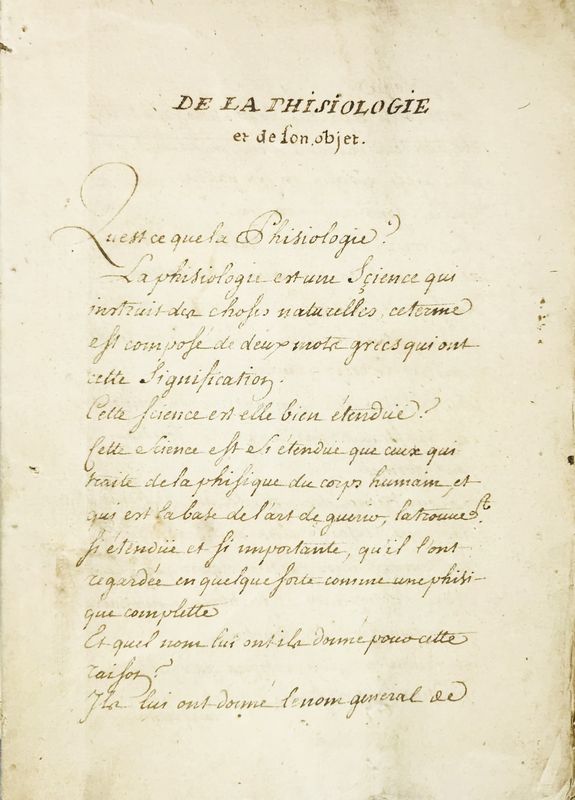 DE LA PHISIOLOGIE
et de son objet.
Qu'est ce que la Phisiologie ?
La phisiologie est une Science qui
instruit des choses naturelles, ce terme
est composé de deux mots grecs qui ont
cette Signification.
Cette science est elle bien étendüe ?
Cette science est si étendue que ceux qui
traite de la phisique du corps humain, et
qui est la base de l'art de guerir, la trouve st
si étendüe et si importante, qu'il l'ont
regardée en quelque sorte comme une phisi-
que complette
Et quel nom lui ont ils donné pour cette
raison ?
Ils lui ont donné le nom general de